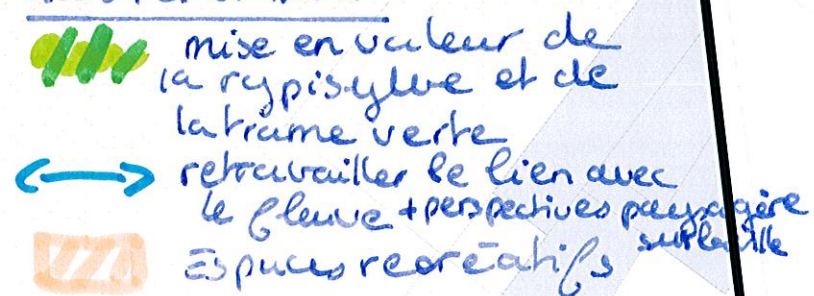 mise en valeur de
la rypisylve et de
la trame verte
retravailler le lien avec
le fleuve + perspectives paysagère
sur la ville
Espaces recréatifs